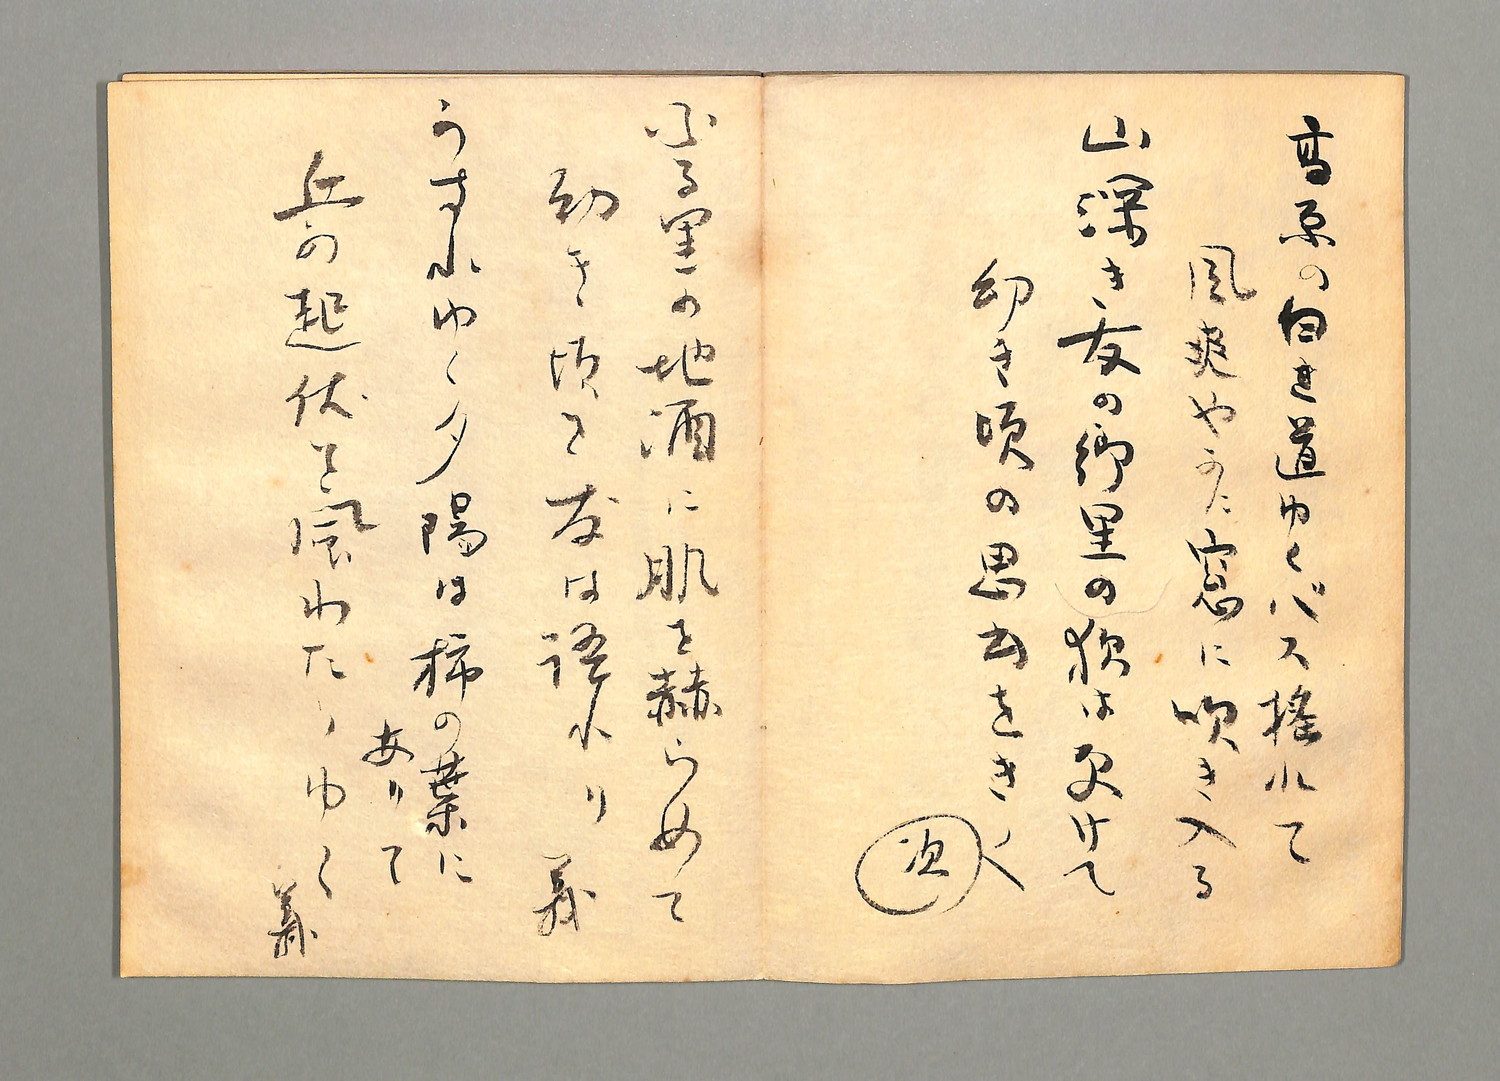 高原の白き道ゆくバス揺れて
風爽やかに窓に吹き入る
山深き友の郷里の秋は更けて
幼き頃の思出をきく
次
ふる里の地酒に肌を赫らめて
幼き頃を友は語れり
義
うすれゆく夕陽は柿の葉に
ありて
丘の起伏を風わたりゆく
義